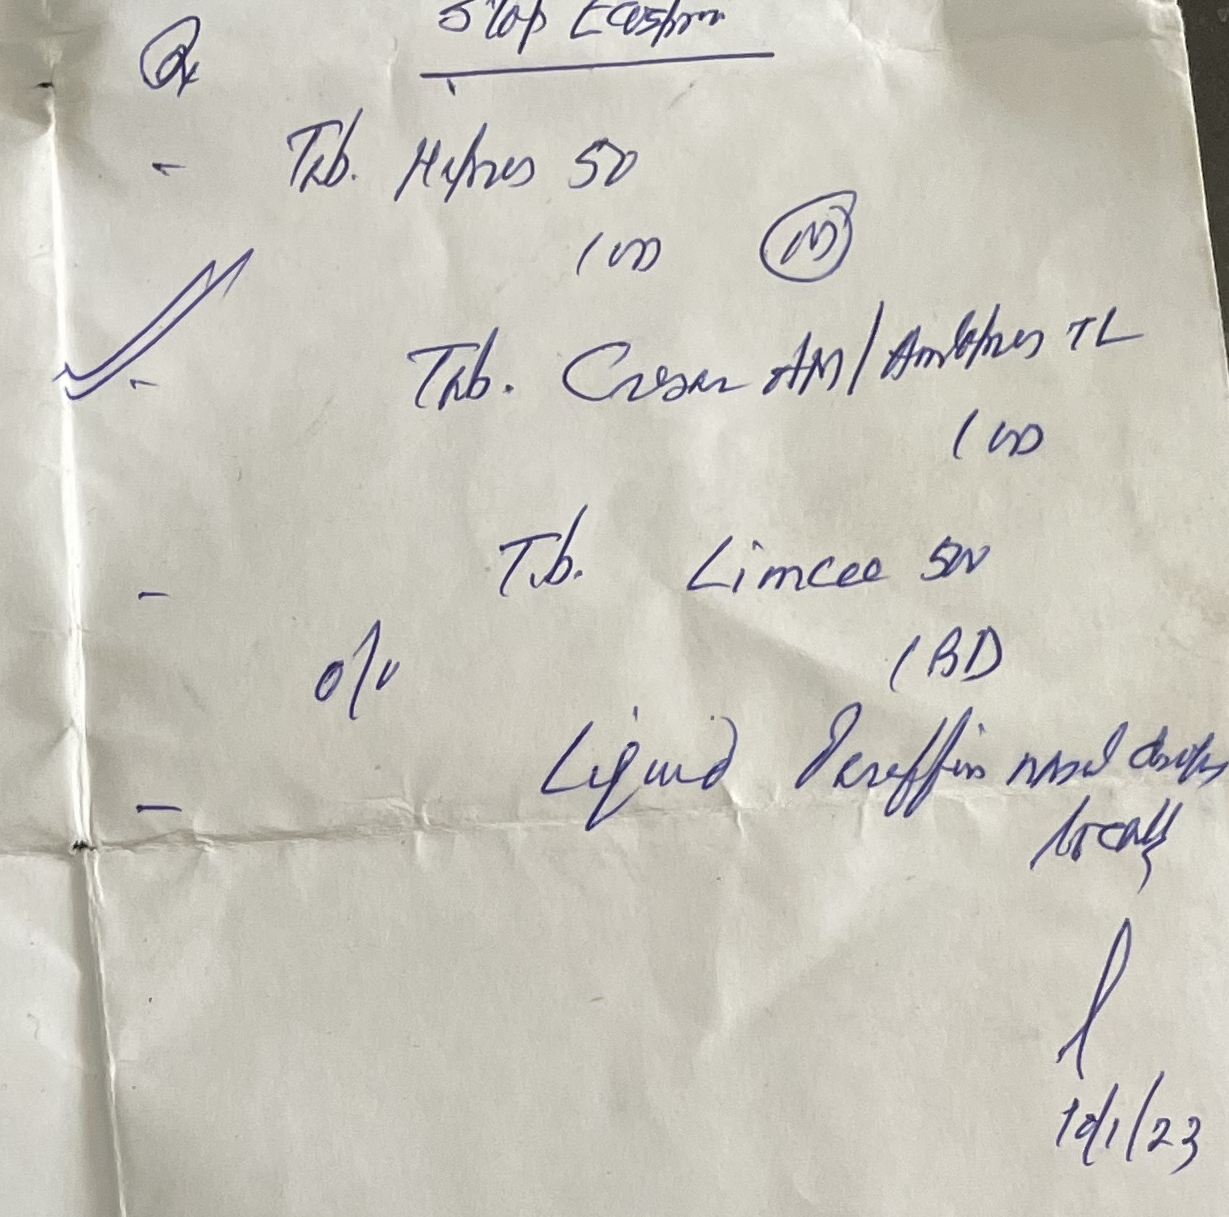 Stop Ecosprin
Rx
- Tab. Hipres 50
1 OD
- Tab. Cresar AM / Amlopres TL
1 OD
- Tab. Limcee 500
1 BD
- Liquid Paraffin nasal drops
locally
10/1/23